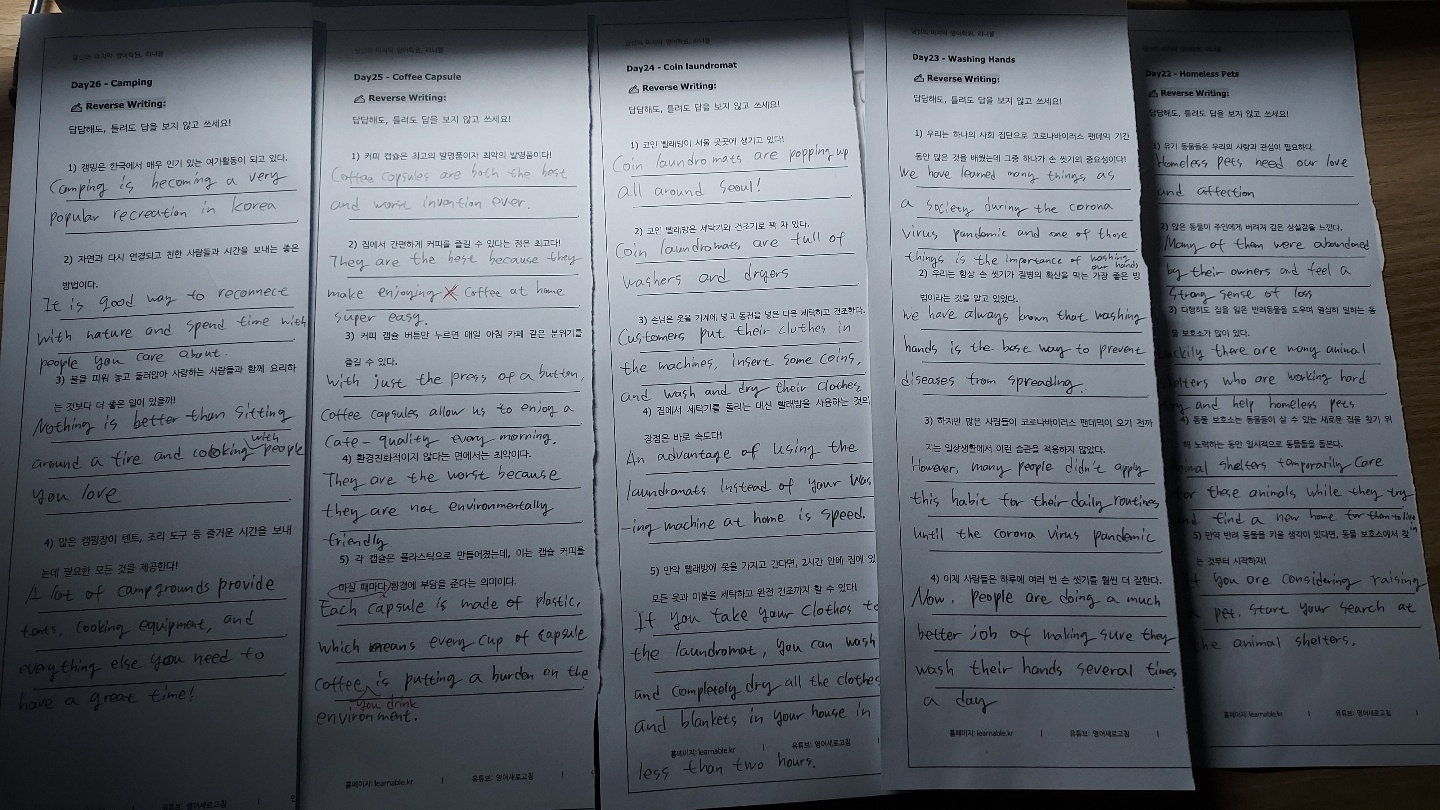 당신의 마지막 영어학원, 러너블
Day26 - Camping
Reverse Writing:
답답해도, 틀려도 답을 보지 않고 쓰세요!
1) 캠핑은 한국에서 매우 인기 있는 여가활동이 되고 있다.
Camping is becoming a very
popular recreation in Korea
2) 자연과 다시 연결되고 친한 사람들과 시간을 보내는 좋은
방법이다.
It is good way to reconnect
with nature and spend time with
people you care about.
3) 불을 피워 놓고 둘러앉아 사랑하는 사람들과 함께 요리하
는 것보다 더 좋은 일이 있을까!
Nothing is better than sitting
around a fire and cooking with people
you love
4) 많은 캠핑장이 텐트, 조리 도구 등 즐거운 시간을 보내
는데 필요한 모든 것을 제공한다!
A lot of campgrounds provide
tents, cooking equipment, and
everything else you need to
have a great time!
홈페이지: learnable.kr | 유튜브: 영어새로고침 |
당신의 마지막 영어학원, 러너블
Day25 - Coffee Capsule
Reverse Writing:
답답해도, 틀려도 답을 보지 않고 쓰세요!
1) 커피 캡슐은 최고의 발명품이자 최악의 발명품이다!
Coffee capsules are both the best
and worst invention ever.
2) 집에서 간편하게 커피를 즐길 수 있다는 점은 최고다!
They are the best because they
make enjoying coffee at home
super easy.
3) 커피 캡슐 버튼만 누르면 매일 아침 카페 같은 분위기를
즐길 수 있다.
With just the press of a button,
coffee capsules allow us to enjoy a
cafe-quality every morning.
4) 환경친화적이지 않다는 면에서는 최악이다.
They are the worst because
they are not environmentally
-friendly
5) 각 캡슐은 플라스틱으로 만들어졌는데, 이는 캡슐 커피를
마실 때마다 환경에 부담을 준다는 의미이다.
Each capsule is made of plastic,
which means every cup of capsule
coffee is putting a burden on the
you drink
environment.
홈페이지: learnable.kr | 유튜브: 영어새로고침 |
당신의 마지막 영어학원, 러너블
Day24 - Coin laundromat
Reverse Writing:
답답해도, 틀려도 답을 보지 않고 쓰세요!
1) 코인 빨래방이 서울 곳곳에 생기고 있다!
Coin laundromats are popping up
all around Seoul!
2) 코인 빨래방은 세탁기와 건조기로 꽉 차 있다.
Coin laundromats are full of
washers and dryers
3) 손님은 옷을 기계에 넣고 동전을 넣은 다음 세탁하고 건조한다.
Customers put their clothes in
the machines, insert some coins,
and wash and dry their clothes.
4) 집에서 세탁기를 돌리는 대신 빨래방을 사용하는 것의
장점은 바로 속도다!
An advantage of using the
laundromats instead of your was
-ing machine at home is speed.
5) 만약 빨래방에 옷을 가지고 간다면, 2시간 안에 집에 있
모든 옷과 이불을 세탁하고 완전 건조까지 할 수 있다!
If you take your clothes to
the laundromat, you can wash
and completely dry all the clothes
and blankets in your house in
홈페이지: learnable.kr | 유튜브: 영어새로고침 |
less than two hours.
당신의 마지막 영어학원, 러너블
Day23 - Washing Hands
Reverse Writing:
답답해도, 틀려도 답을 보지 않고 쓰세요!
1) 우리는 하나의 사회 집단으로 코로나바이러스 팬데믹 기간
동안 많은 것을 배웠는데 그중 하나가 손 씻기의 중요성이다!
We have learned many things as
a society during the corona
virus pandemic and one of those
things is the importance of washing
our hands
2) 우리는 항상 손 씻기가 질병의 확산을 막는 가장 좋은 방
법이라는 것을 알고 있었다.
We have always known that washing
hands is the base way to prevent
diseases from spreading.
3) 하지만 많은 사람들이 코로나바이러스 팬데믹이 오기 전까
지는 일상생활에서 이런 습관을 적용하지 않았다.
However, many people didn't apply
this habit for their daily routines
until the corona virus pandemic
4) 이제 사람들은 하루에 여러 번 손 씻기를 훨씬 더 잘한다.
Now, people are doing a much
better job of making sure they
wash their hands several times
a day
홈페이지: learnable.kr | 유튜브: 영어새로고침 |
마지막 영어학원, 러너블
Day22 - Homeless Pets
Reverse Writing:
답답해도, 틀려도 답을 보지 않고 쓰세요!
1) 유기 동물들은 우리의 사랑과 관심이 필요하다.
Homeless pets need our love
and affection
2) 많은 동물이 주인에게 버려져 깊은 상실감을 느낀다.
Many of them were abandoned
by their owners and feel a
strong sense of loss
3) 다행히도 집을 잃은 반려동물을 도우며 열심히 일하는 동
물 보호소가 많이 있다.
there are many animal
who are working hard
and help homeless pets
4) 동물 보호소는 동물들이 살 수 있는 새로운 집을 찾기 위
해 노력하는 동안 일시적으로 동물들을 돌본다.
shelters temporarily care
for these animals while they try
find a new home for them to live
in
5) 만약 반려 동물을 키울 생각이 있다면, 동물 보호소에서 찾
는 것부터 시작하자!
you are considering raising
a pet. Start your search at
the animal shelters.
홈페이지: learnable.kr | 유튜브: 영어새로고침